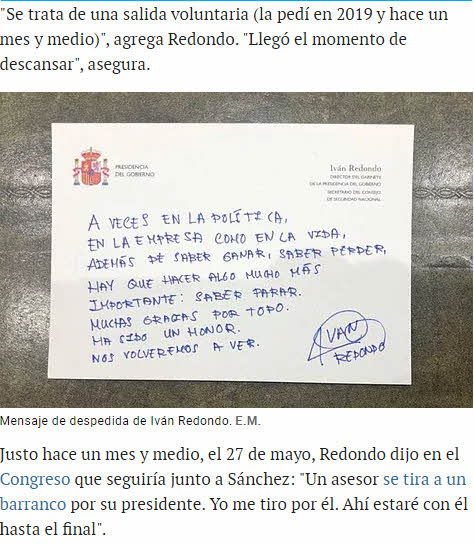 "Se trata de una salida voluntaria (la pedí en 2019 y hace un
mes y medio)", agrega Redondo. "Llegó el momento de
descansar", asegura.
PRESIDENCIA
DEL GOBIERNO
Iván Redondo
DIRECTOR DEL GABINETE
DE LA PRESIDENCIA DEL GOBIERNO
SECRETARIO DEL CONSEJO
DE SEGURIDAD NACIONAL
A VECES EN LA POLÍTICA,
EN LA EMPRESA COMO EN LA VIDA,
ADEMÁS DE SABER GANAR, SABER PERDER,
HAY QUE HACER ALGO MUCHO MÁS
IMPORTANTE: SABER PARAR.
MUCHAS GRACIAS POR TODO.
HA SIDO UN HONOR.
NOS VOLVEREMOS A VER.
IVAN
REDONDO
Mensaje de despedida de Iván Redondo. E.M.
Justo hace un mes y medio, el 27 de mayo, Redondo dijo en el
Congreso que seguiría junto a Sánchez: "Un asesor se tira a un
barranco por su presidente. Yo me tiro por él. Ahí estaré con él
hasta el final".